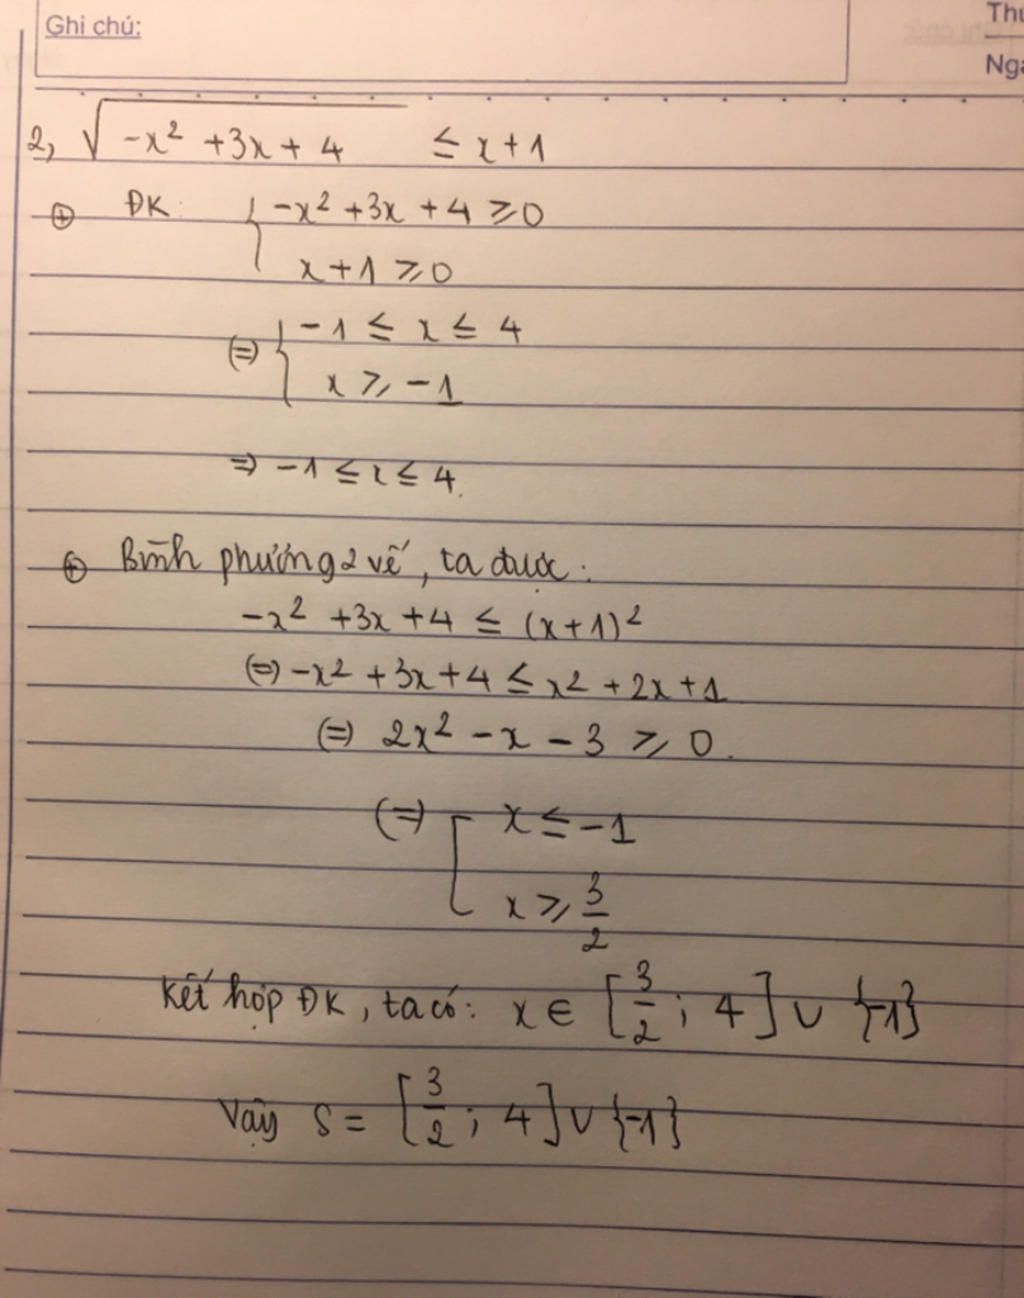 Ghi chú:
Thu
Ngà
2, √-x² + 3x + 4 ≤ x + 1
⊕ ĐK: { -x² + 3x + 4 ≥ 0
x + 1 ≥ 0
(=) { -1 ≤ x ≤ 4
x ≥ -1
=> -1 ≤ x ≤ 4.
⊕ Bình phương 2 vế, ta được:
-x² + 3x + 4 ≤ (x + 1)²
(=) -x² + 3x + 4 ≤ x² + 2x + 1
(=) 2x² - x - 3 ≥ 0.
(=) [ x ≤ -1
x ≥ 3/2
Kết hợp ĐK, ta có: x ∈ [3/2; 4] ∪ {-1}
Vậy S = [3/2; 4] ∪ {-1}